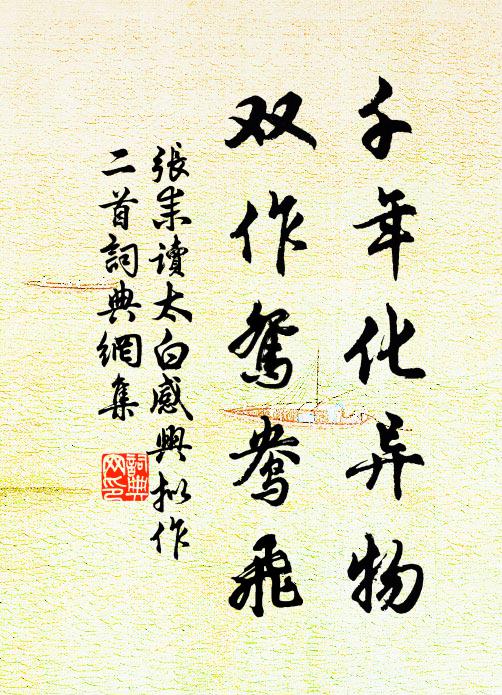 千年化异物
双作鸳鸯飛
張耒讀太白感興拟作
二首詞典網集
詞典
网印